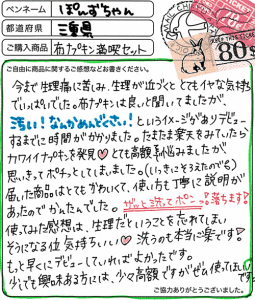 ペンネーム ぽんずちゃん
都道府県 三重県
ご購入商品 布ナプキン満喫セット
ご自由に商品に関するご感想などお書きください。
今まで生理痛に苦しみ、生理が近づくととてもイヤな気持ち
でいっぱいでした。布ナプキンは良いと聞いてましたが、
汚い！なんかめんどくさい！というイメージがありデビュー
するまでに時間がかかりました。たまたま楽天をみていたら
カワイイナプキンを発見♡とても高額で悩みましたが
思いきってポチッとしてしまいました。(いっきにそろえたので💦)
届いた商品はとてもかわいくて、使い方も丁寧に説明が
あったのでかんたんでした。ザッと洗ってポンっ♪落ちます？
使ってみた感想は、生理だということを忘れてしまい
そうになる位気持ちいい♡洗うのも本当に楽です！
もっと早くにデビューしていればよかったです。
少しでも興味ある方には、少々高額ですがぜひ使ってほしい
です。
ご協力ありがとうございました。
80